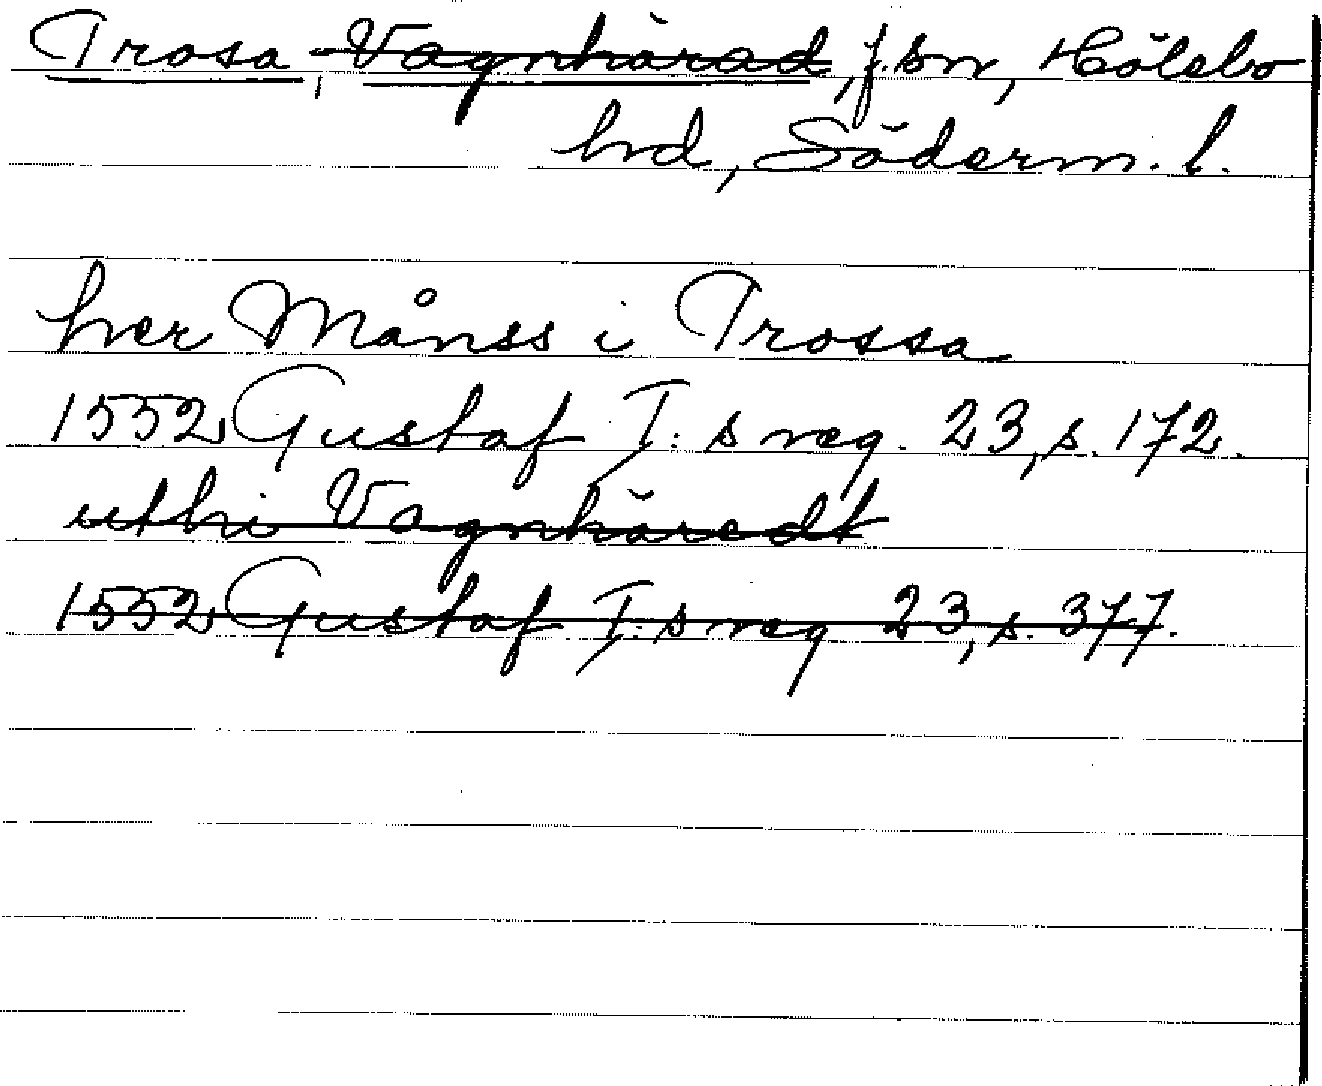 Trosa, Vagnhärad, f. sn, Hölebo
hd, Söderm. l.
her Månss i Trossa
1552 Gustaf I:s reg. 23, s. 172.
uthi Vagnhäredt
1552 Gustaf I:s reg 23, s. 377.